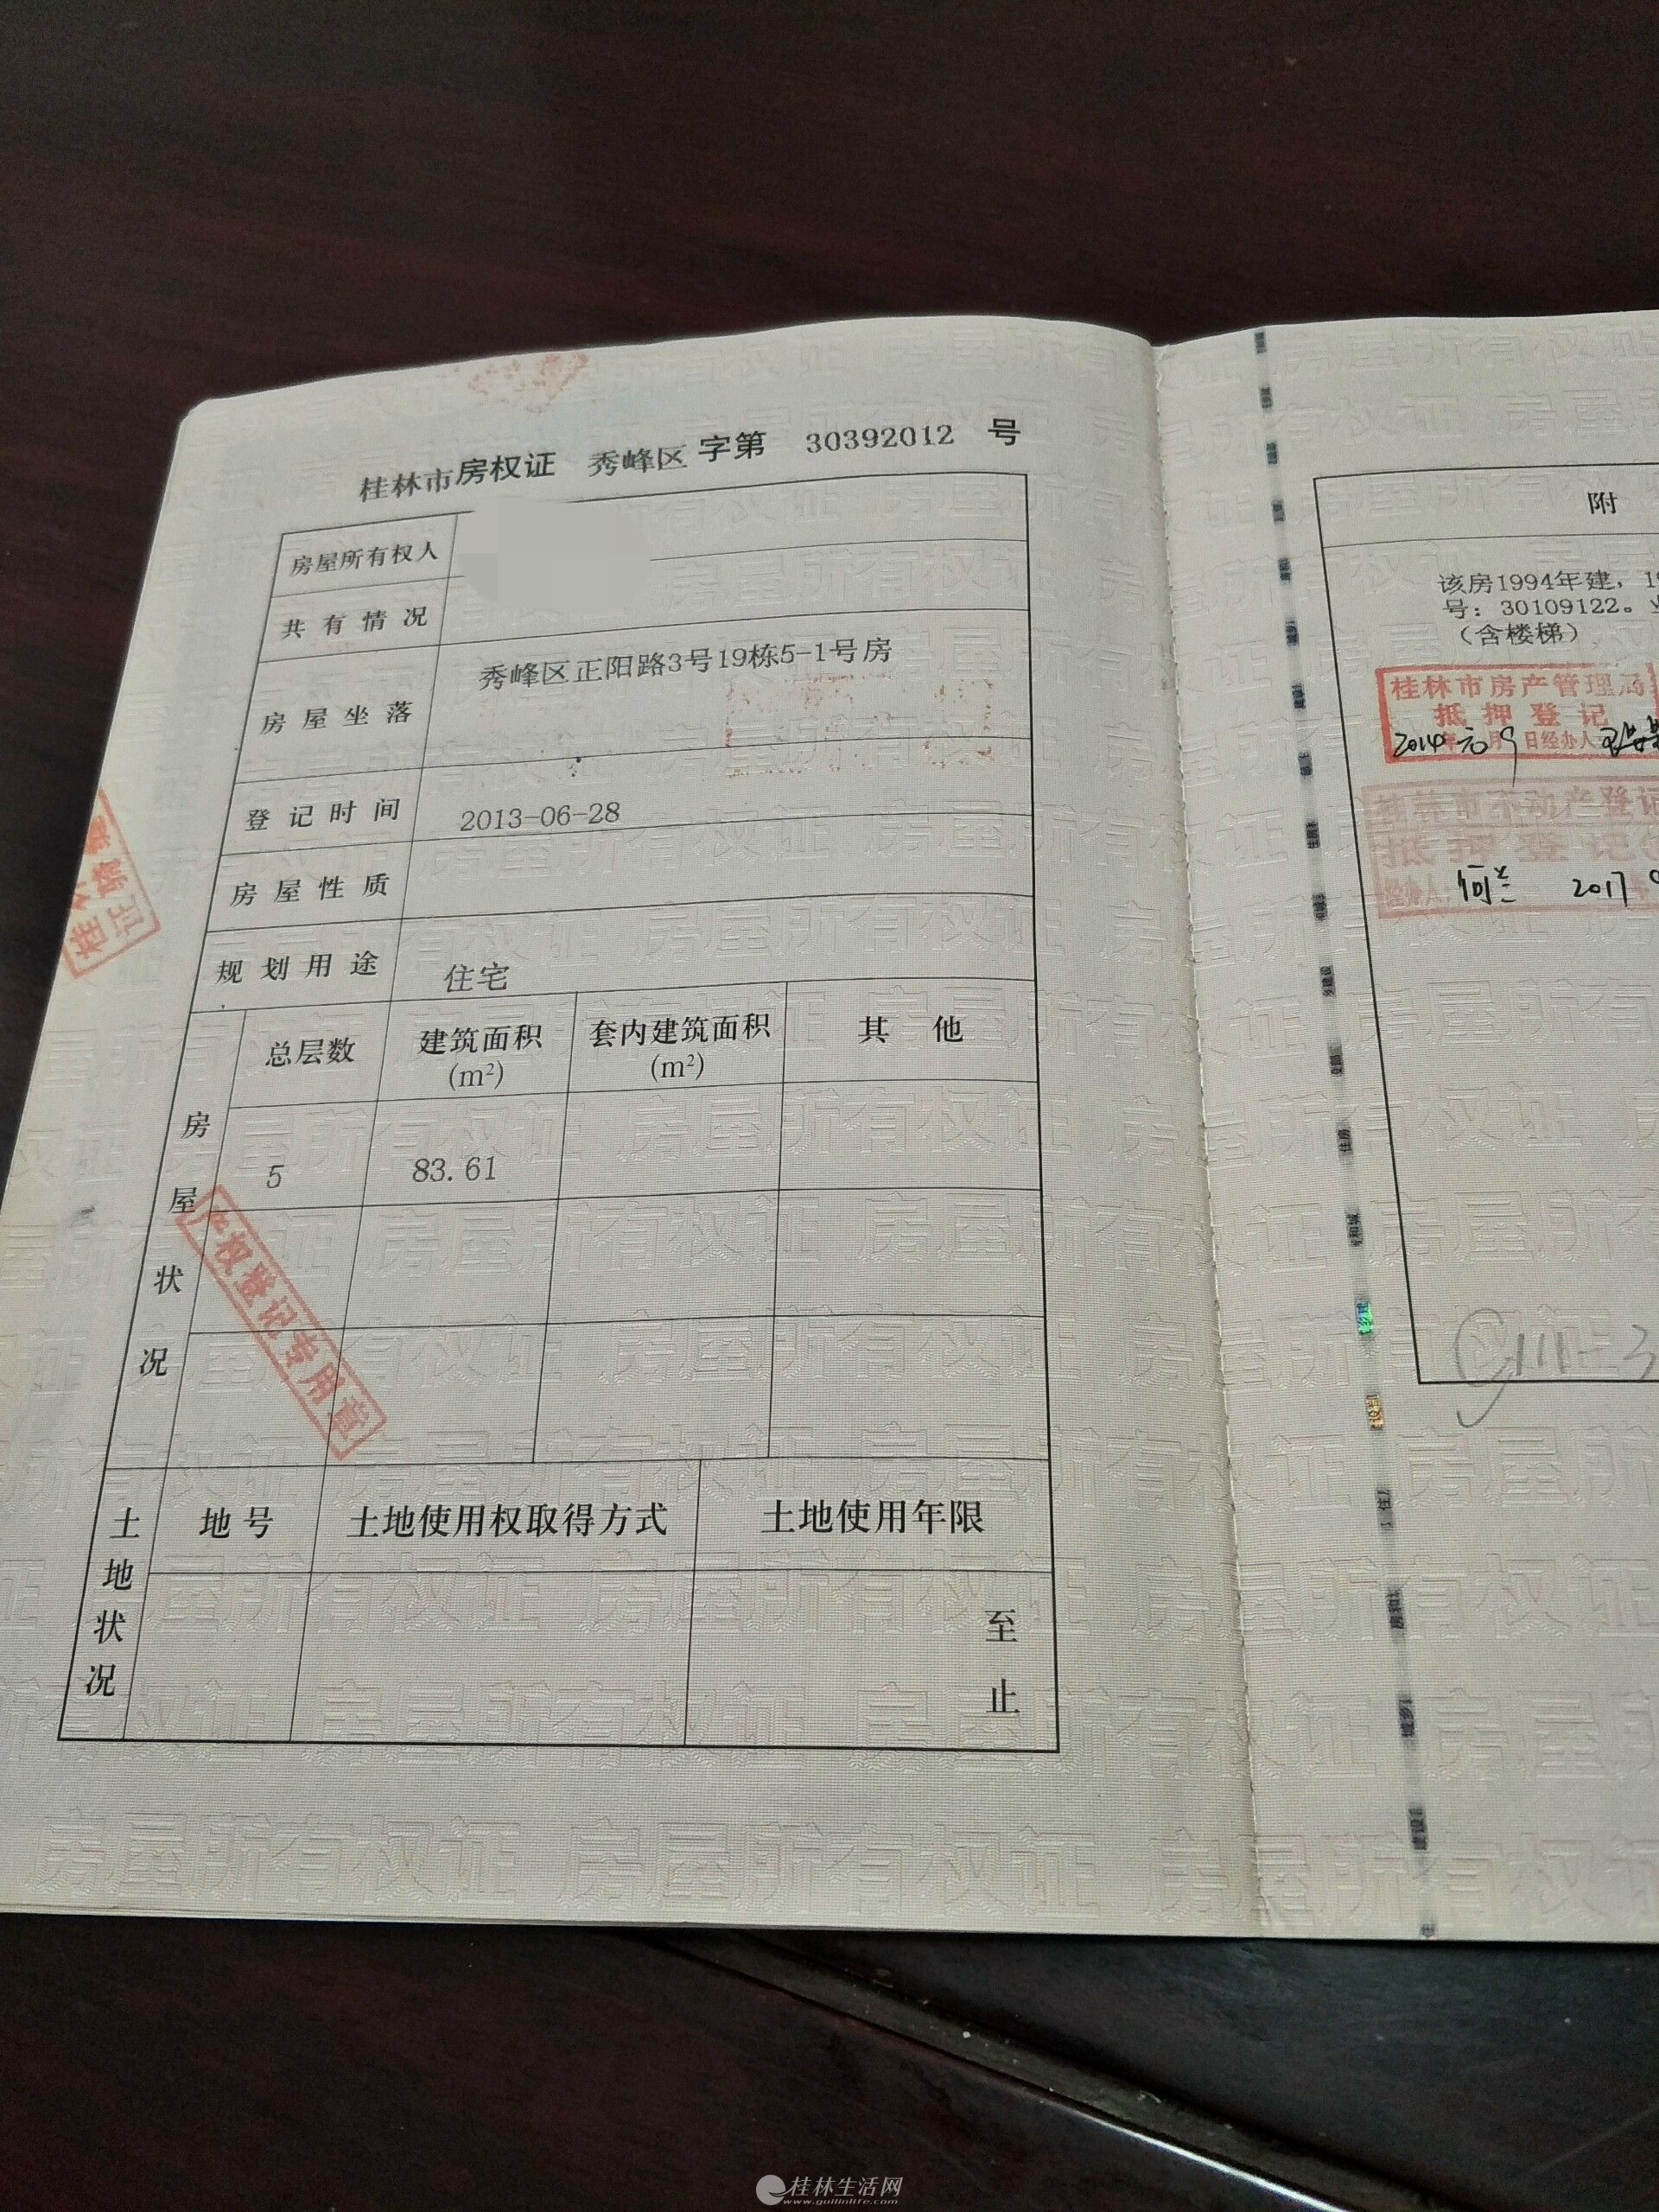 桂林市房权证 秀峰区 字第 30392012 号
房屋所有权人
共有情况
房屋坐落 秀峰区正阳路3号19栋5-1号房
登记时间 2013-06-28
房屋性质
规划用途 住宅
房屋状况
总层数 建筑面积(m²) 套内建筑面积(m²) 其他
5 83.61
产权登记专用章
土地状况
地号 土地使用权取得方式 土地使用年限
至
止
附
该房1994年建，
号：30109122。
（含楼梯）
桂林市房产管理局
抵押登记
2014年 月 日经办人
桂林市不动产登记
抵押登记
经办人： 2017
桂林生活网
www.guilinlife.com